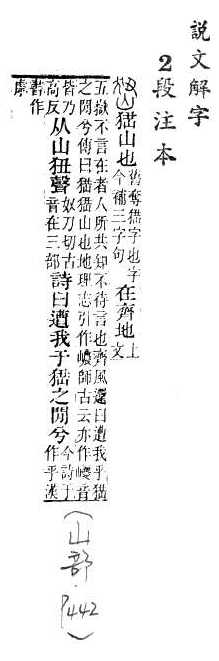 說文解字
2段注本
峱山也舊奪峱字也字今補三字句在齊地上文
五嶽不言在者人所共知不待言也齊風還曰遭我乎峱
之閒兮傳曰峱峱山也地理志引作巙師古云亦作巙音
皆乃高反从山狃聲奴刀切古音在三部詩曰遭我于峱之閒兮今詩于作乎漢
書作
(山部.P442)